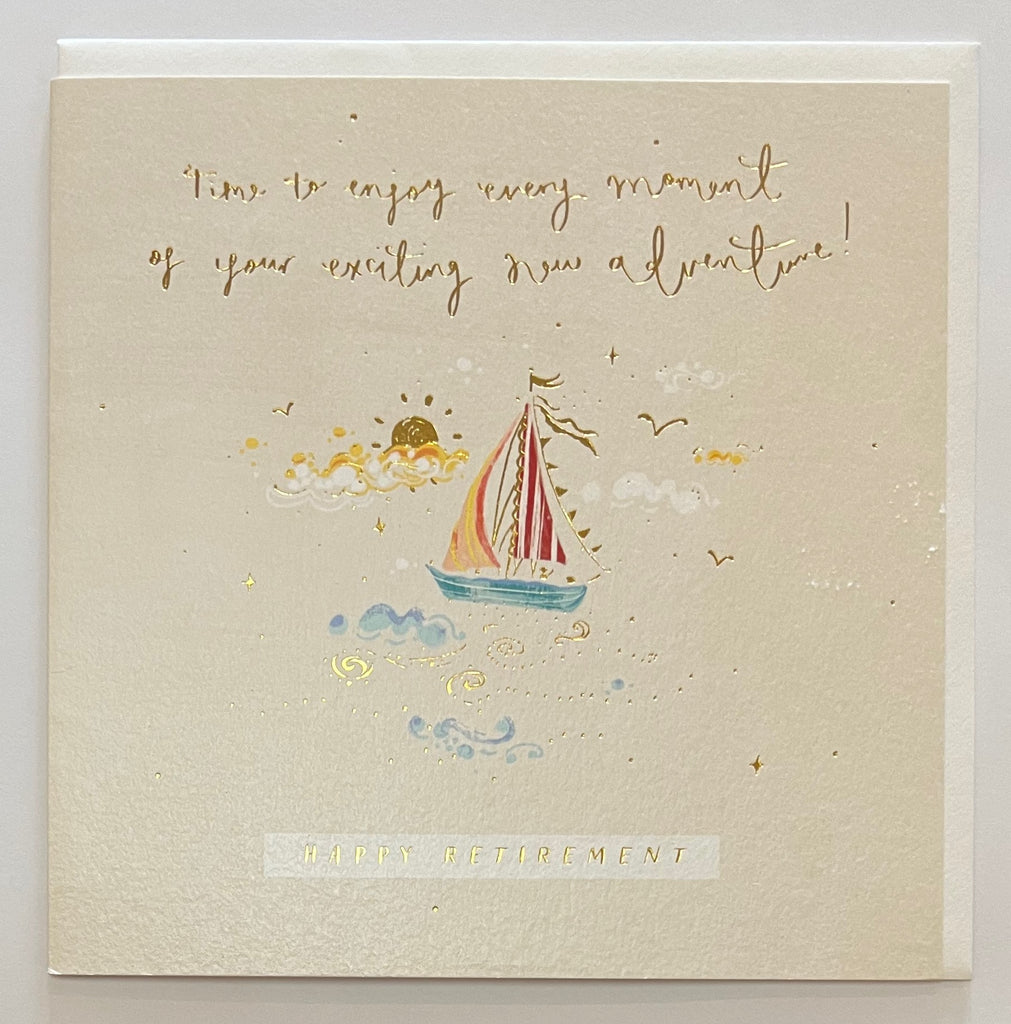 Time to enjoy every moment
of your exciting new adventure!
HAPPY RETIREMENT